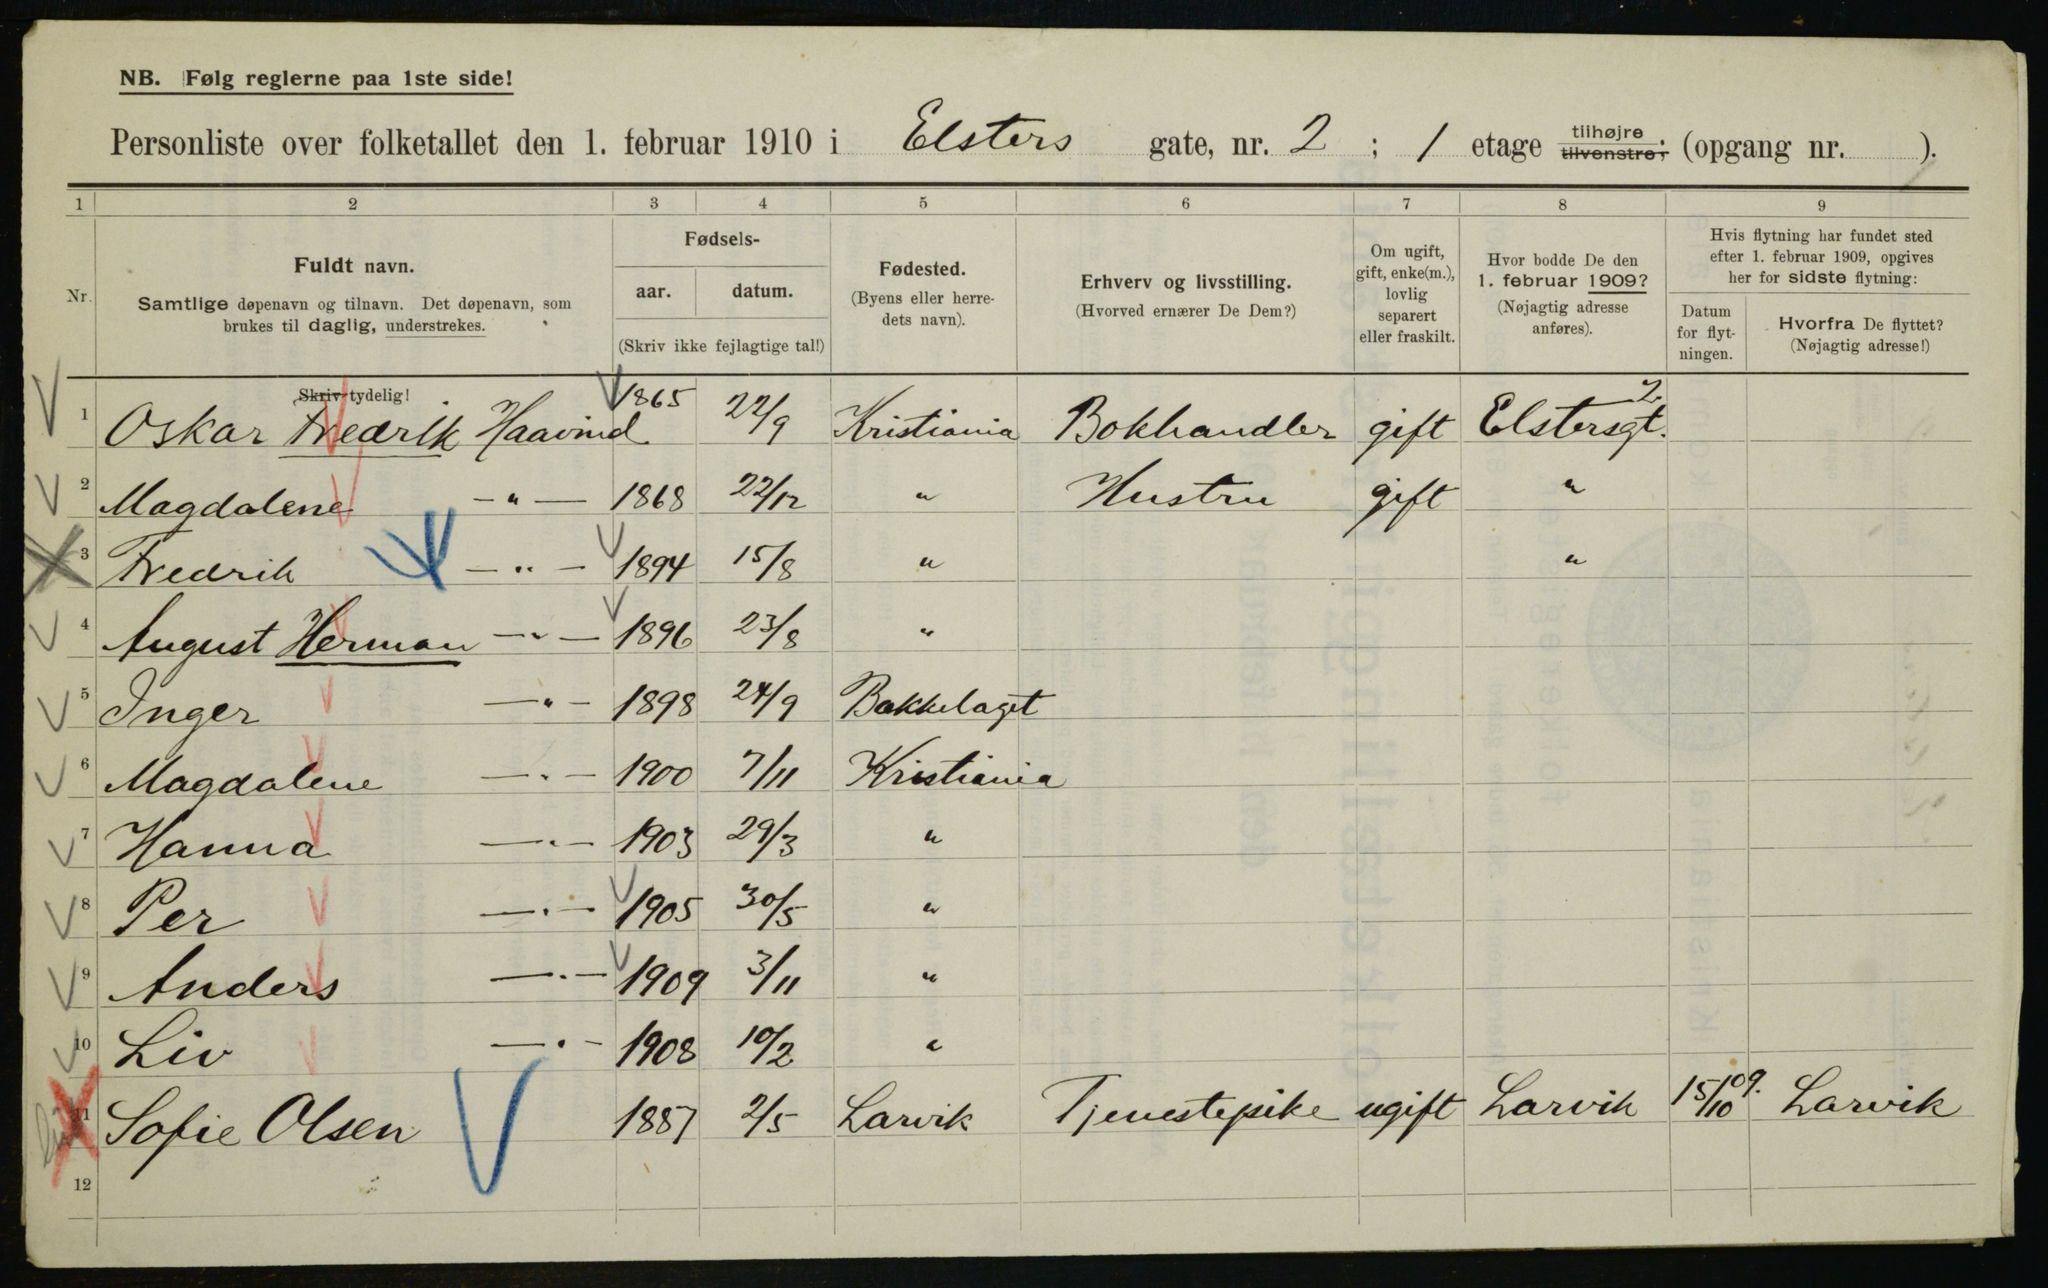 NB. Følg reglerne paa 1ste side!
Personliste over folketallet den 1. februar 1910 i Elsters gate, nr. 2 ; 1 etage tilhøjre tilvenstre; (opgang nr. ).
1 2 3 4 5 6 7 8 9
Nr. Fuldt navn. Samtlige døpenavn og tilnavn. Det døpenavn, som brukes til daglig, understrekes.
Fødsels- aar. datum. (Skriv ikke fejlagtige tal!)
Fødested. (Byens eller herredets navn).
Erhverv og livsstilling. (Hvorved ernærer De Dem?)
Om ugift, gift, enke(m.), lovlig separert eller fraskilt.
Hvor bodde De den 1. februar 1909? (Nøjagtig adresse anføres).
Hvis flytning har fundet sted efter 1. februar 1909, opgives her for sidste flytning:
Datum for flytningen.
Hvorfra De flyttet? (Nøjagtig adresse!)
Skriv tydelig!
1 Oskar Fredrik Haavind 1865 22/9 Kristiania Bokhandler gift Elstersgt. 2
2 Magdalene —"— 1868 22/12 " Hustru gift "
3 Fredrik —"— 1894 15/8 " "
4 August Herman —"— 1896 23/8 "
5 Inger —"— 1898 24/9 Bakkelaget
6 Magdalene —"— 1900 7/11 Kristiania
7 Hanna —"— 1903 29/3 "
8 Per —"— 1905 30/5 "
9 Anders —"— 1909 3/11 "
10 Liv —"— 1908 10/2 "
11 Sofie Olsen 1887 2/5 Larvik Tjenestepike ugift Larvik 15/10 09. Larvik
12